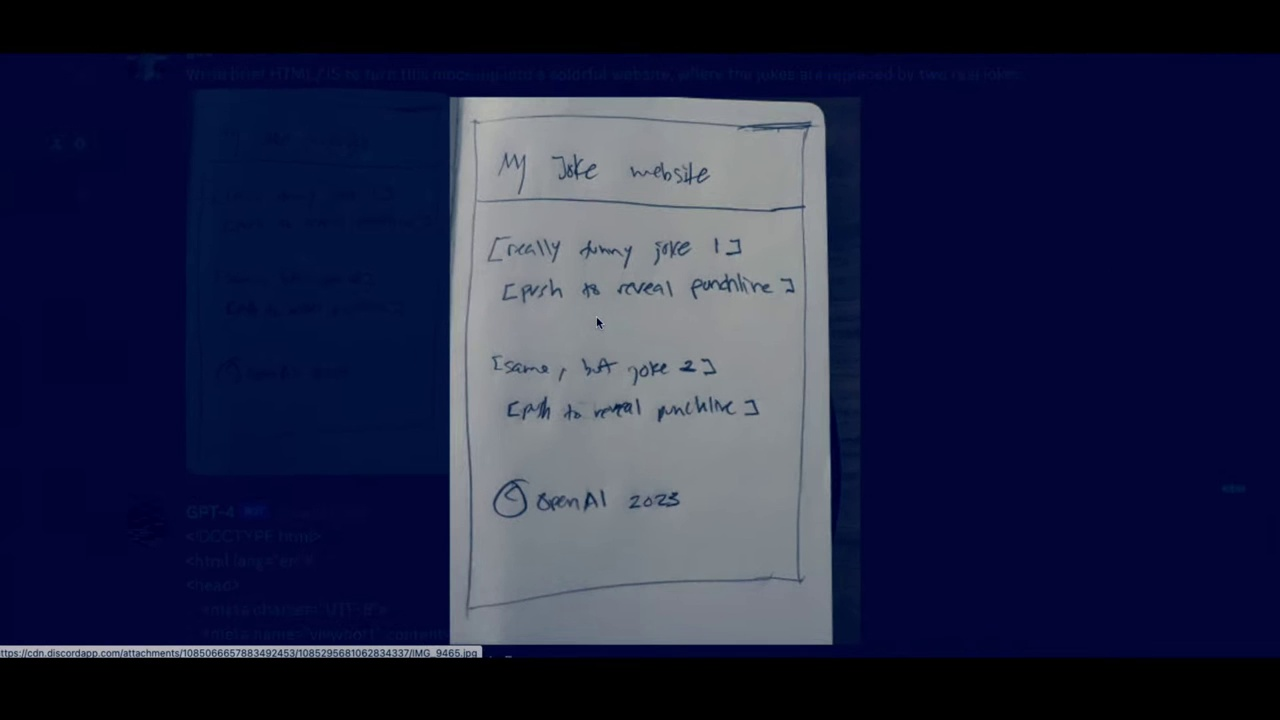 Write brief HTML/JS to turn this mock-up into a colorful website, where the jokes are replaced by two real jokes.
My Joke website
[really funny joke 1]
[push to reveal punchline]
[same, but joke 2]
[push to reveal punchline]
© OpenAI 2023
GPT-4 BOT
<!DOCTYPE html>
<html lang="en">
<head>
<meta charset="UTF-8">
<meta name="viewport" content=
https://cdn.discordapp.com/attachments/1085066657883492453/1085295681062834337/IMG_9465.jpg